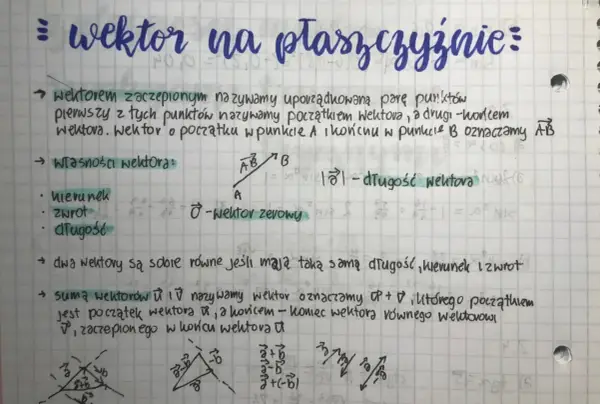 wektor na płaszczyźnie:
→ wektorem zaczepionym nazywamy uporządkowaną parę punktów
pierwszy z tych punktów nazywamy początkiem wektora, a drugi - końcem
wektora. Wektor o początku w punkcie A i końcu w punkcie B oznaczamy A⃗B⃗
→ własności wektora:
• kierunek
• zwrot
• długość
A⃗B⃗
B
A
0⃗ - wektor zerowy
|a⃗| - długość wektora
→ dwa wektory są sobie równe jeśli mają taką samą długość, kierunek i zwrot
→ sumą wektorów u⃗ i v⃗ nazywamy wektor oznaczamy u⃗ + v⃗, którego początkiem
jest początek wektora u⃗, a końcem - koniec wektora równego wektorowi
v⃗, zaczepionego w końcu wektora u⃗
a⃗+b⃗
a⃗-b⃗
a⃗+(-b⃗)